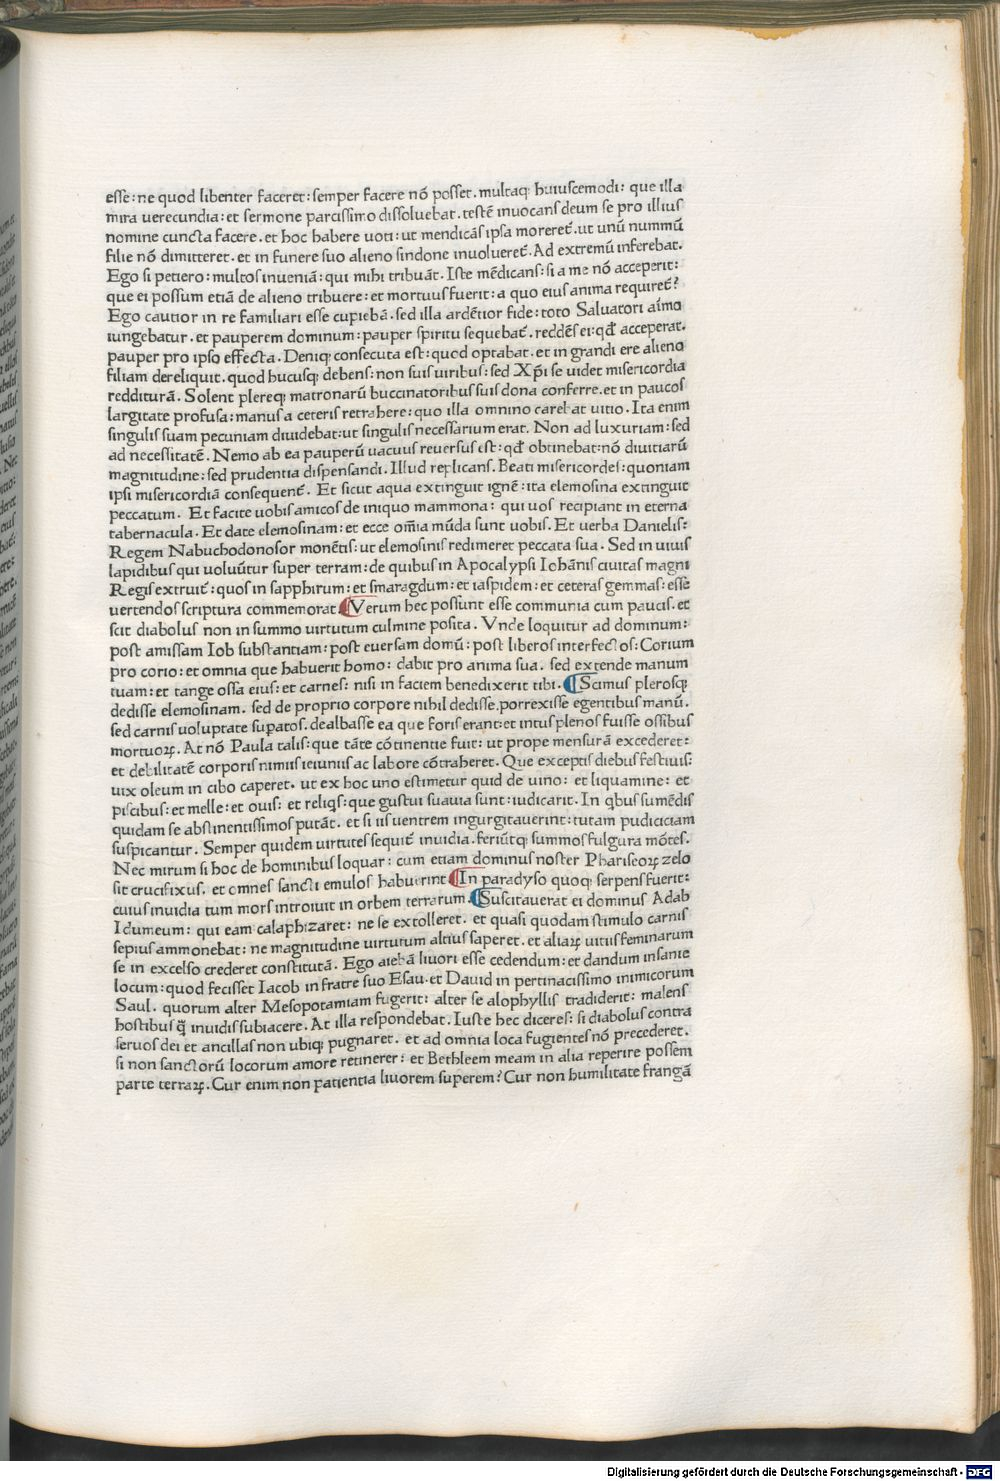 esse: ne quod libenter faceret: semper facere nō posset. multaq; huiuscemodi: que illa
mira uerecundia: et sermone parcissimo dissoluebat. testē inuocans deum se pro illius
nomine cuncta facere. et hoc habere uoti: ut mendicās ipsa moreret᷑. ut unū nummū
filie nō dimitteret. et in funere suo alieno sindone inuolueret᷑. Ad extremū inferebat.
Ego si petiero: multos inueniā: qui mihi tribuāt. Iste mēdicans: si a me nō acceperit:
que ei possum etiā de alieno tribuere: et mortuus fuerit: a quo eius anima requiret᷑?
Ego cautior in re familiari esse cupiebā. sed illa ardētior fide: toto Saluatori aīmo
iungebatur. et pauperem dominum: pauper spiritu sequebat᷑. reddēs ei: qđ acceperat.
pauper pro ipso effecta. Deniq; consecuta est: quod optabat. et in grandi ere alieno
filiam dereliquit. quod hucusq; debens: non suis uiribus: sed Xp̄i se uidet misericordia
redditurā. Solent plereq; matronarū buccinatoribus suis dona conferre. et in paucos
largitate profusa: manus a ceteris retrahere: quo illa omnino carebat uitio. Ita enim
singulis suam pecuniam diuidebat: ut singulis necessarium erat. Non ad luxuriam: sed
ad necessitatē. Nemo ab ea pauperū uacuus reuersus est: qđ obtinebat: nō diuitiarū
magnitudine: sed prudentia dispensandi. Illud replicans. Beati misericordes: quoniam
ipsi misericordiā consequent᷑. Et sicut aqua extinguit ignē: ita elemosina extinguit
peccatum. Et facite uobis amicos de iniquo mammona: qui uos recipiant in eterna
tabernacula. Et date elemosinam: et ecce om̄ia mūda sunt uobis. Et uerba Danielis:
Regem Nabuchodonosor monētis: ut elemosinis redimeret peccata sua. Sed in uiuis
lapidibus qui uoluūtur super terram: de quibus in Apocalypsi Iohānis ciuitas magni
Regis extruit᷑: quos in sapphirum: et smaragdum: et iaspidem: et ceteras gemmas: esse
uertendos scriptura commemorat. ¶Verum hec possunt esse communia cum paucis. et
scit diabolus non in summo uirtutum culmine posita. Vnde loquitur ad dominum:
post amissam Iob substantiam: post euersam domū: post liberos interfectos: Corium
pro corio: et omnia que habuerit homo: dabit pro anima sua. sed extende manum
tuam: et tange ossa eius: et carnes: nisi in faciem benedixerit tibi. ¶Scimus plerosq;
dedisse elemosinam. sed de proprio corpore nihil dedisse. porrexisse egentibus manū.
sed carnis uoluptate supatos. dealbasse ea que foris erant: et intus plenos fuisse ossibus
mortuoꝝ. At nō Paula talis: que tāte cōtinentie fuit: ut prope mensurā excederet:
et debilitatē corporis nimiis ieiuniis ac labore cōtraheret. Que exceptis diebus festiuis:
uix oleum in cibo caperet. ut ex hoc uno estimetur quid de uino: et liquamine: et
piscibus: et melle: et ouis: et reliqs: que gustui suauia sunt: iudicarit. In qbus sumēdis
quidam se abstinentissimos putāt. et si iis uentrem ingurgitauerint: tutam pudiciciam
suspicantur. Semper quidem uirtutes sequit᷑ inuidia. feriūtq; summos fulgura mōtes.
Nec mirum si hoc de hominibus loquar: cum etiam dominus noster Phariseoꝝ zelo
sit crucifixus. et omnes sancti emulos habuerint ¶In paradyso quoq; serpens fuerit:
cuius inuidia tum mors introiuit in orbem terrarum. ¶Suscitauerat ei dominus Adab
Idumeum: qui eam calaphizaret: ne se extolleret. et quasi quodam stimulo carnis
sepius ammonebat: ne magnitudine uirtutum altius saperet. et aliaꝝ uitiis feminarum
se in excelso crederet constitutā. Ego aiebā liuori esse cedendum: et dandum insanie
locum: quod fecisset Iacob in fratre suo Esau. et Dauid in pertinacissimo inimicorum
Saul. quorum alter Mesopotamiam fugerit: alter se alophyllis tradiderit: malens
hostibus q̄̃ inuidis subiacere. At illa respondebat. Iuste hec diceres: si diabolus contra
seruos dei et ancillas non ubiq; pugnaret. et ad omnia loca fugientes nō precederet.
si non sanctorū locorum amore retinerer: et Bethleem meam in alia reperire possem
parte terraꝝ. Cur enim non patientia liuorem superem? Cur non humilitate frangā
Digitalisierung gefördert durch die Deutsche Forschungsgemeinschaft - DFG